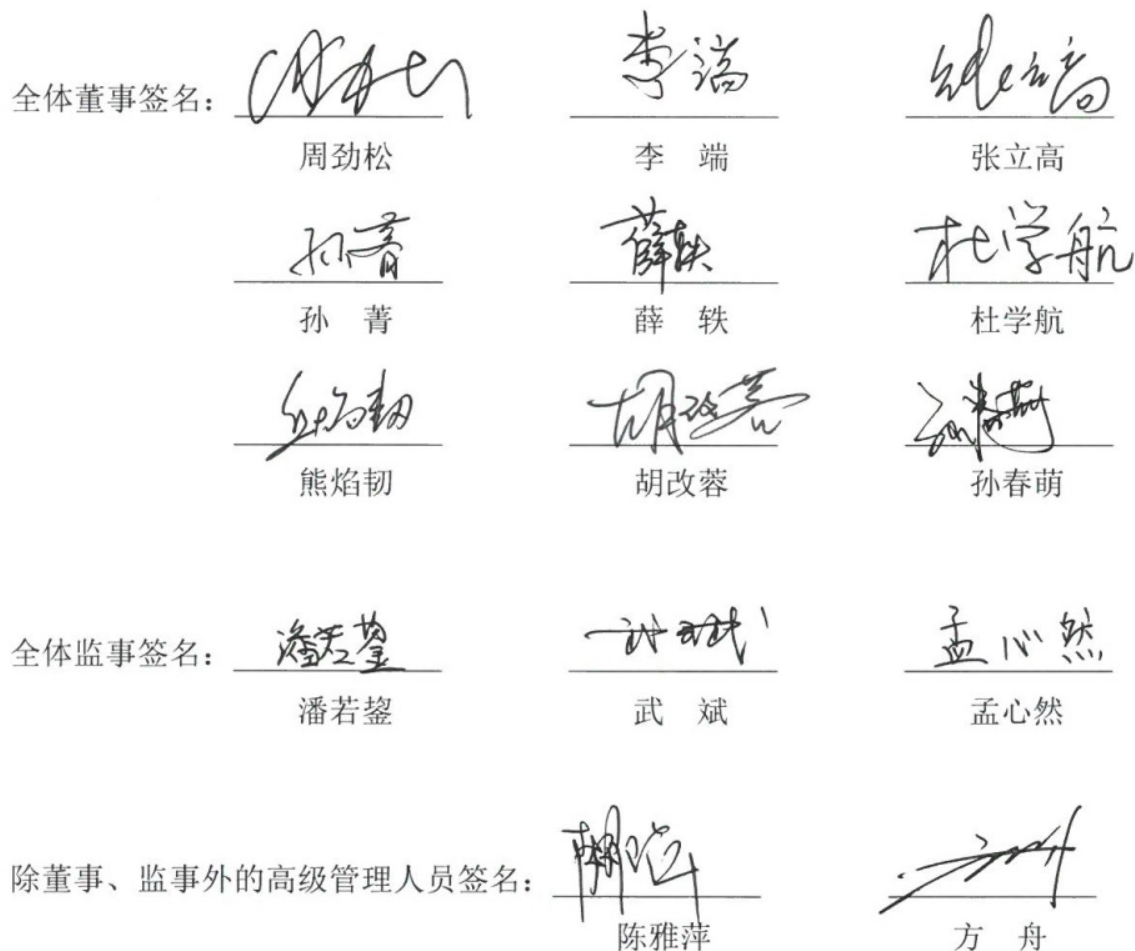 全体董事签名：
周劲松 李 端 张立高
孙菁 薛轶 杜学航
孙 菁 薛 轶 杜学航
胡改蓉
熊焰韧 胡改蓉 孙春萌
全体监事签名： 潘若鋆 孟心然
潘若鋆 武 斌 孟心然
除董事、监事外的高级管理人员签名：
陈雅萍 方 舟